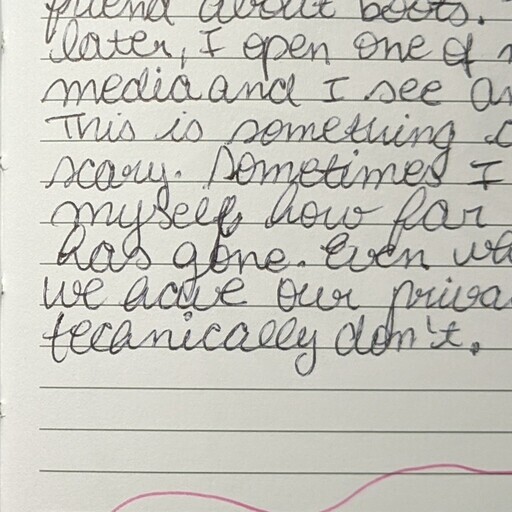 friend about boots.
later, I open one of
media and I see
This is something
scary. Sometimes I
myself how far
has gone. Even
we have our
tecanically don't.